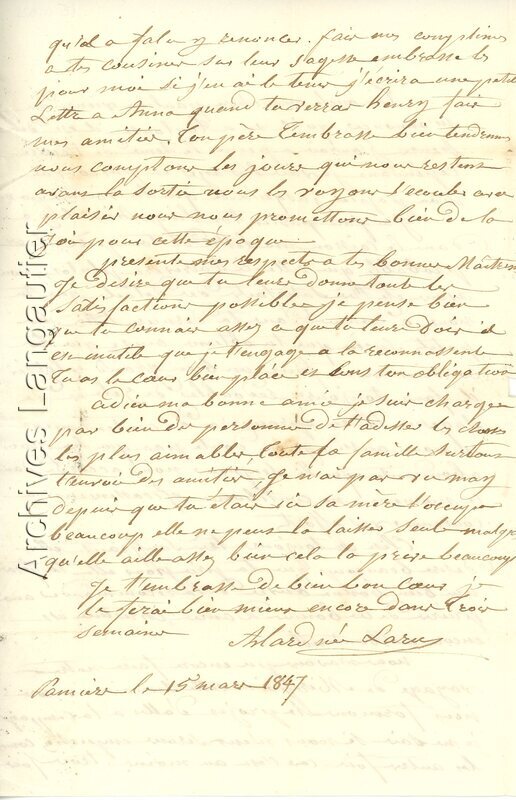 qu'il a falu y renoncer. fair mes complimes
a tes cousines sur leur sagesse embrasse les
pour moi si j'en ai le tems j'écrirai une petite
Lettre a Anna quand tu verras henry fair
mes amitiés, Ton père t'embrasse bien tendremen
nous comptons les jours qui nous restent
avant la sortie nous les voyons s'écouler avec
plaisir nous nous promettons bien de la
joie pour cette époque.
présente mes respects a tes bonnes Maitresses
Je désire que tu leur donne toutes les
satisfactions possibles je pense bien
que tu connais assez ce que tu leur dois il
est inutile que je t'engage a la reconnossente
Tu as le cœur bien placé et tout ton obligation
adieu ma bonne amie je suis chargée
par bien des personnes de t'adresser les choses
les plus aimables, toute ta famille surtout
t'envoie des amitiés, Je n'ai pas vu may
depuis que tu étais ici sa mère l'occupe
beaucoup elle ne peut la laisser seule malgré
qu'elle aille assez bien cela la prive beaucoup
Je t'embrasse de bien bon cœur je
le ferai bien mieux encore dans Trois
semaines Alard née Larue
Pamiers le 15 mars 1847
Archives Langautier